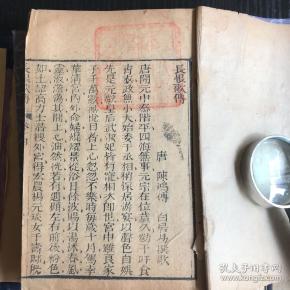 長恨歌傳
唐 陳鴻傳 白居易歌
唐開元中泰階平四海無事元宗在位歲久勌于旰食
宵衣政無小大始委于丞相稍深居遊宴以聲色自娛
先是元獻皇后武淑妃皆有寵相次即世宮中雖良家
子千萬數無悅目者上心忽忽不樂時每歲十月駕幸
華清宮內外命婦熠燿景從浴日餘波賜以湯沐春風
靈液澹蕩其間上心油然若有所遇顧左右前後粉色
如土詔高力士潛搜外宮得宏農楊元琰女于壽邸既
長恨歌傳
孔夫子旧书网